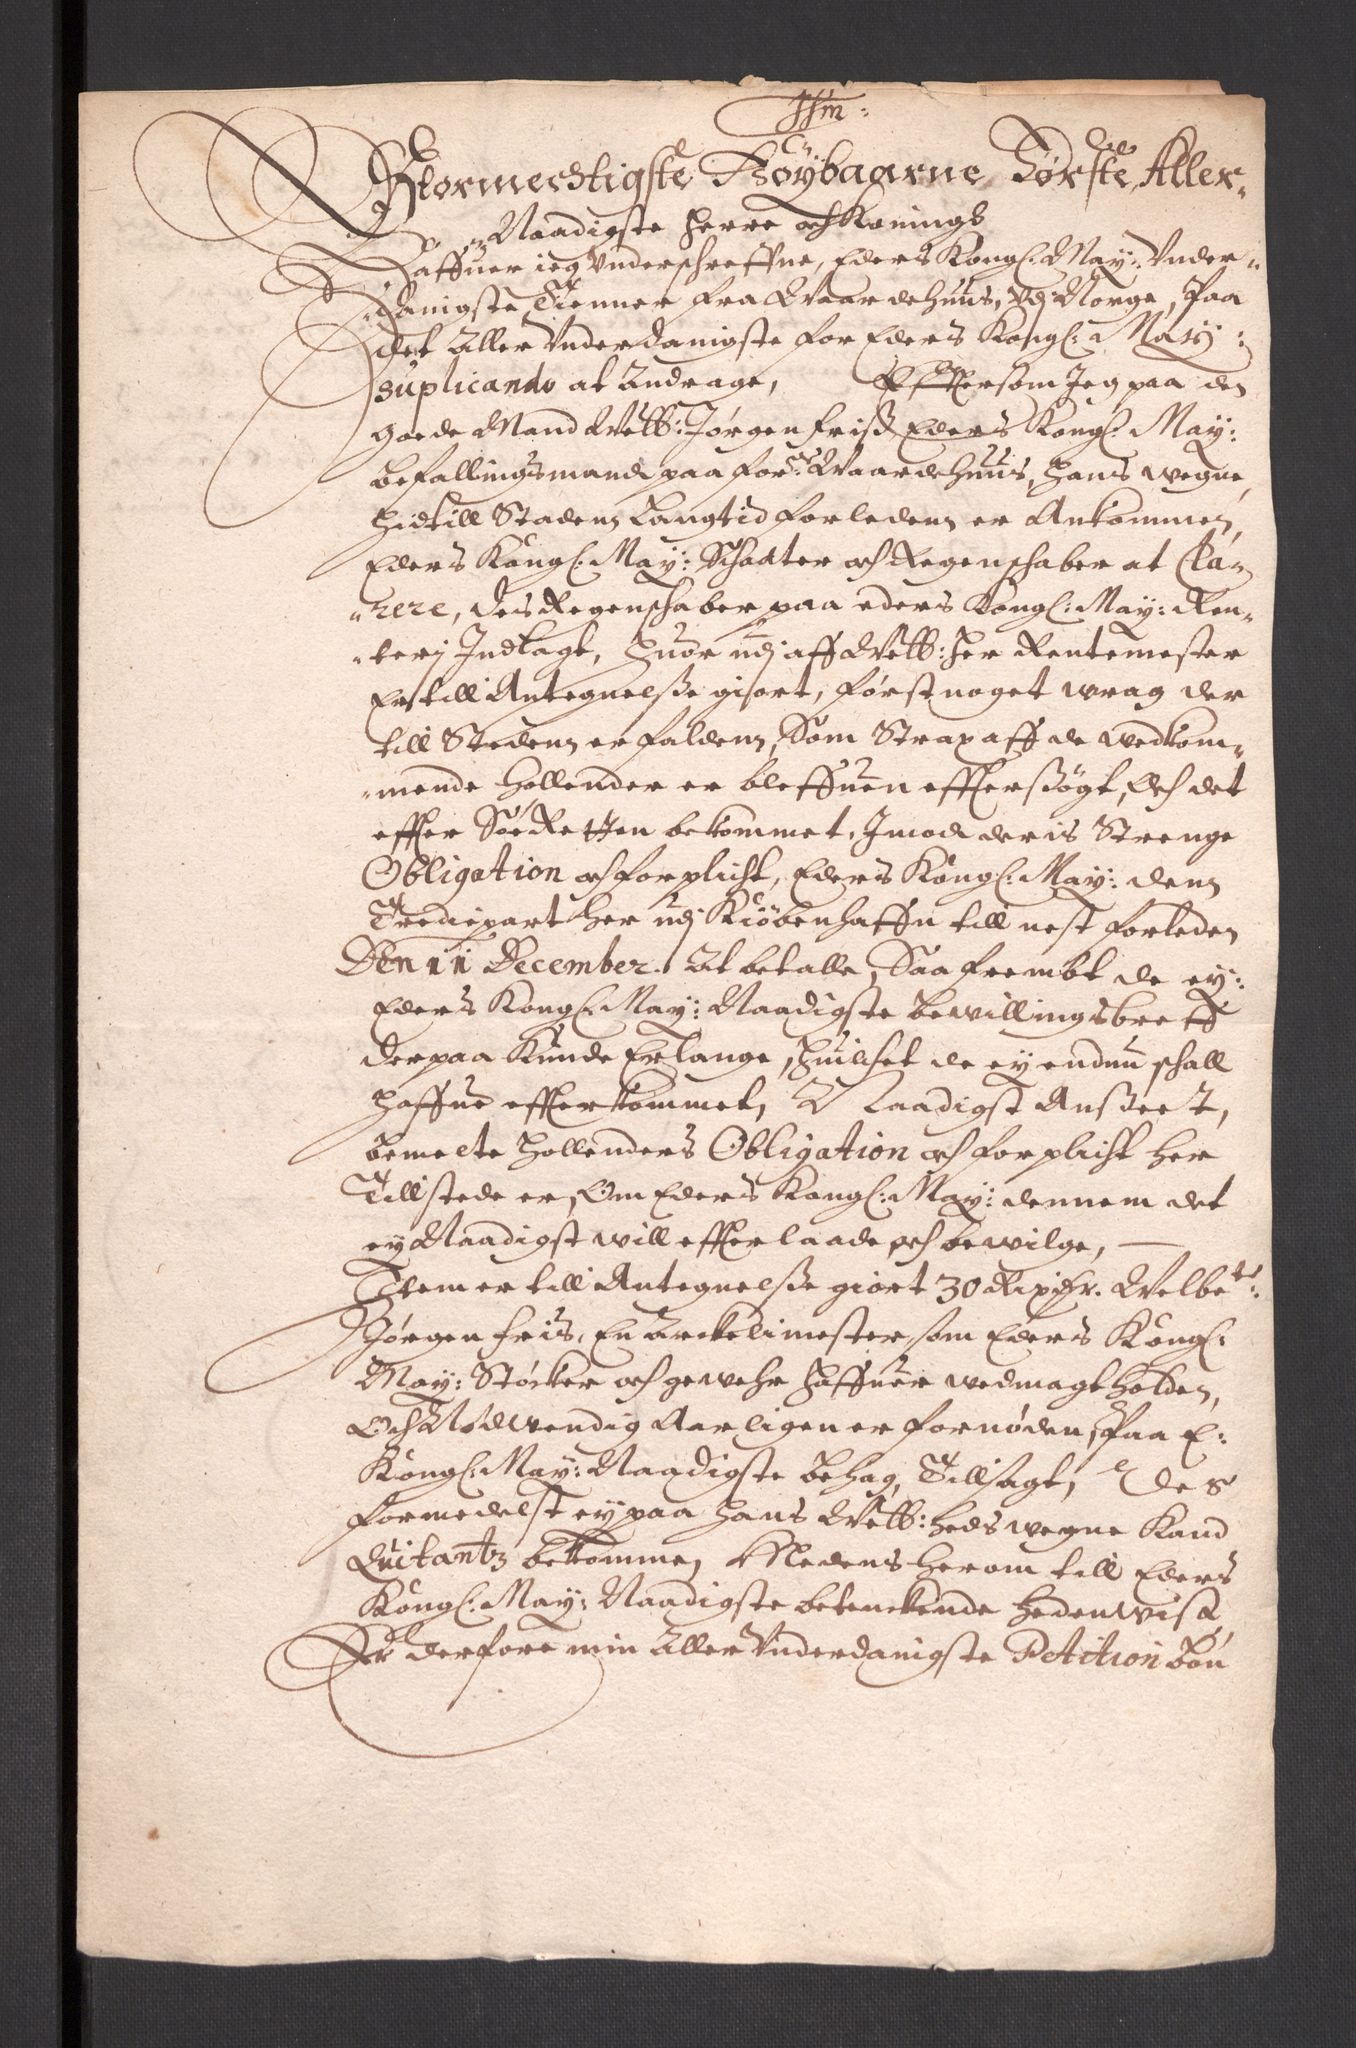 Stormechtigste Høybaarne Første, Aller-
Naadigste Herre och Konings
Haffuer ieg Underschreffne, Eders Kongl: May: Under-
danigste Tienner fra Waardehuus, udj Norge, Paa
det Aller Underdanigste for Eders Kongl: May:
Suplicando at Andrage, Effthersom Jeg paa den
goede Mand Velb: Jørgen Friss Eders Kongl: May:
befallingsmand paa for: Waardehuus, Hans wegne,
Hidtill Staden Langtid forleden er Ankommen,
Eders Kongl: May: Schatter och Regenschaber at Cla-
rere, Des Regenschaber paa eders Kongl: May: Ren-
terj Indlagt, Huor udj aff Velb: Her Rentemester
Er till Antegnelsse giort, først noget wrag der
till Steden er falden, Som Strax aff de wedkom-
mende Hollender er bleffuen effterssøgt, Och det
effter Søe Retten bekommet, Imod deris Strenge
Obligation och forplicht, Eders Kongl: May: den
Trediepart her udj Kiøbenhaffn till nest forleden
Den 11 December. At betalle, Saa frembt de ey:
Eders Kongl: May: Naadigste bewillingsbreff
derpaa Kunde Erlange, Huilchet de ey endnu schall
Haffue effterkommet, Naadigst Ansseet,
bemelte Hollenders Obligation och forplicht her
Tillstede er, Om Eders Kongl: May: dennem det
ey Naadigst will effterlaade och bewilge,
Item er till Antegnelsse giort 30 Rixdr. Welbe:
Jørgen Fris, En Arckelimester, som Eders Kongl:
May: Støcker och gewehr Haffuer wedmagt holden,
Och Nødwendig Aarligen er fornøden, Paa E:
Kongl: May: Naadigste behag, Tillsagt, Des
formedelst ey paa Hans Velb: heds wegne Kand
Quitantz bekomme, Medens herom till Eders
Kongl: May: Naadigste betenckende hedenwist,
Er derfore min Aller Underdanigste Petition bøn